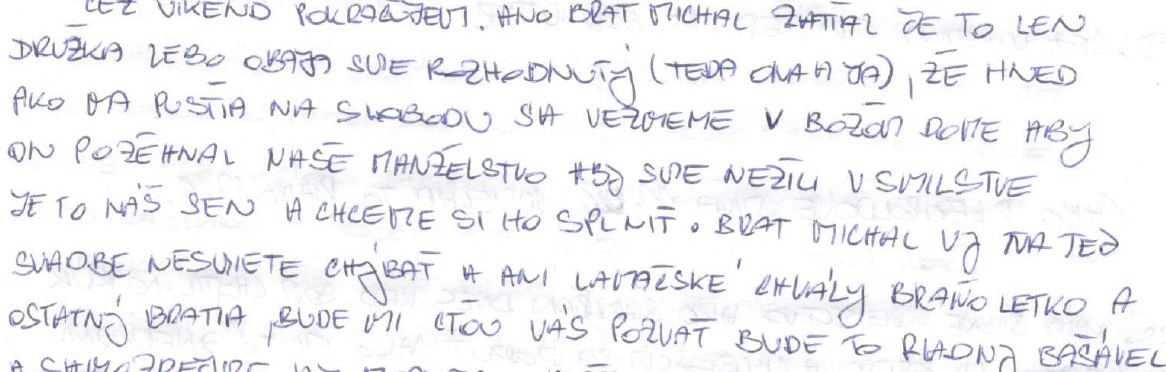 CEZ VIKEND POKRAČUJEM. ANO BRAT MICHAL ZATIAL JE TO LEN
DRUŽKA LEBO OBAJA SME ROZHODNUTÝ (TEDA ONA A JA), ŽE HNED
AKO MA PUSTIA NA SLOBODU SA VEZMEME V BOŽOM DOME ABY
ON POŽEHNAL NAŠE MANŽELSTVO ABY SME NEŽILI V SMILSTVE
JE TO NÁŠ SEN A CHCEME SI HO SPLNIŤ. BRAT MICHAL VY NA TEJ
SVADBE NESMIETE CHÝBAŤ A ANI LAVAČSKÉ CHVÁLY BRAŇO LETKO A
OSTATNÝ BRATIA, BUDE MI CŤOU VÁS POZVAŤ BUDE TO RIADNY BAŠÁVEL
A